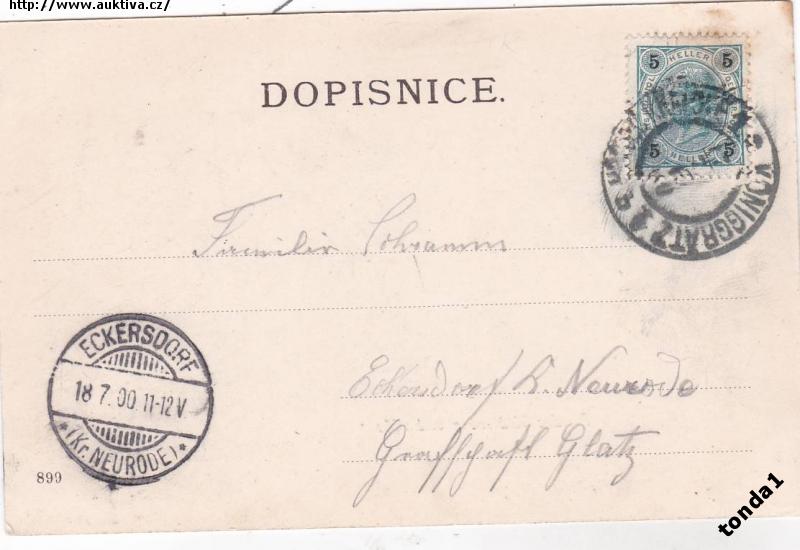 http://www.auktiva.cz/
DOPISNICE.
5 HELLER 5
5 HELLER 5
KÖNIGGRÄTZ 1
Familie Schramm
ECKERSDORF
18 7.00 11-12V
*(Kr. NEURODE)*
Eckersdorf b. Neurode
Grafschaft Glatz
899
tonda1